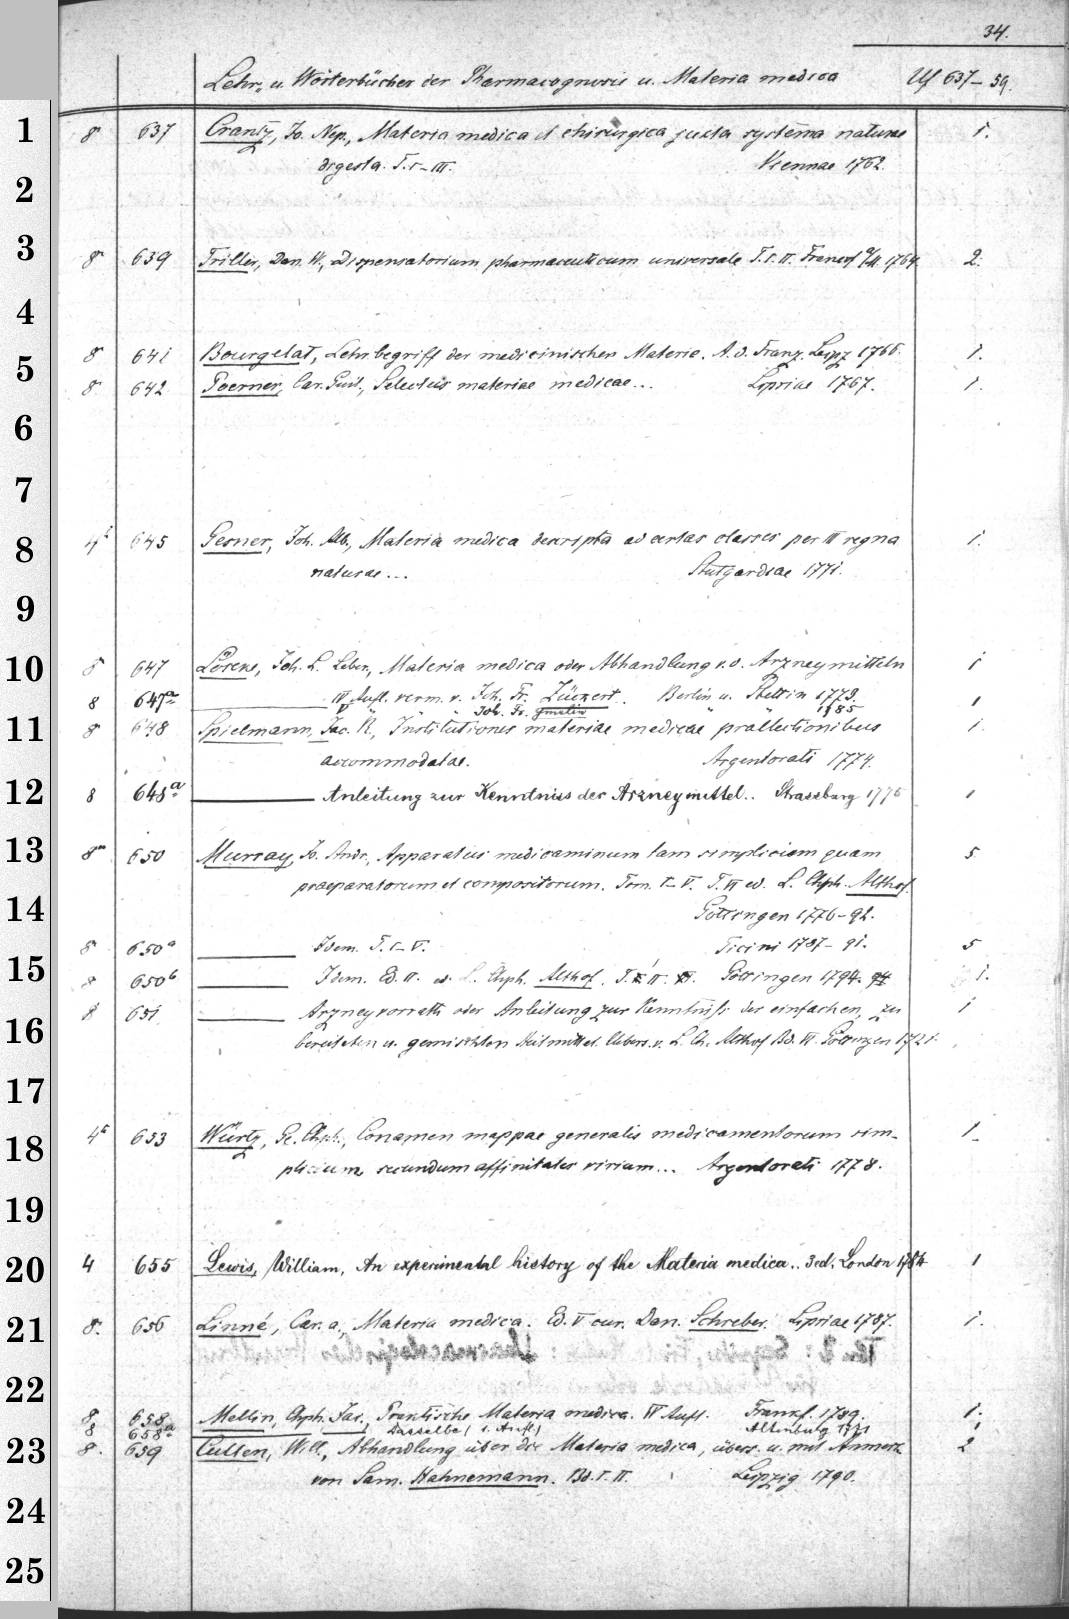 34.
Lehr- u. Wörterbücher der Pharmacognosie u. Materia medica Uf 637-59.
1
8° 637 Crantz, Jo. Nep., Materia medica et chirurgica juxta systema naturae 1.
digesta. T. I-III. Viennae 1762.
2
3
8° 639 Triller, Dan. W., Dispensatorium pharmaceuticum universale T. I. II. Francof a/M. 1764. 2.
4
8° 641 Bourgelat, Lehrbegriff der medicinischen Materie. A. d. Franz. Leipz 1766. 1.
5
8° 642 Poerner, Car. Guil., Selectus materiae medicae... Lipsiae 1767. 1.
6
7
8
4° 645 Gesner, Joh. Alb., Materia medica descripta ad certas classes per III regna 1.
naturae... Stutgardiae 1771.
9
10
8° 647 Löseke, Joh. L. Leber., Materia medica oder Abhandlung v. d. Arzneymitteln 1
8 647a IV Aufl. verm. v. Joh. Fr. Zückert. Berlin u. Stettin 1773. 1
V " " Joh. Fr. Gmelin " " 1785
11
8° 648 Spielmann, Jac. R., Institutiones materiae medicae praelectionibus 1.
accommodatae. Argentorati 1774.
12
8 648a Anleitung zur Kenntniss der Arzneymittel.. Strassburg 1775 1
13
8° 650 Murray, Jo. Andr., Apparatus medicaminum tam simplicium quam 5
praeparatorum et compositorum. Tom. I-V. T. VI ed. L. Chph. Althof.
14
Göttingen 1776-92.
8° 650a Idem. T. I-V. Ticini 1787-91. 5
15
8 650b Idem. Ed. II. ed. L. Chph. Althof. T. I II. Göttingen 1794. 1.
8 651 Arzneyvorrath oder Anleitung zur Kenntniss der einfachen, zu 1
16
bereiteten u. gemischten Heilmittel. Uebers. v. L. Ch. Althof Bd. VI. Göttingen
17
18
4° 653 Würtz, Ge. Chph., Conamen mappae generalis medicamentorum sim- 1.
plicium secundum affinitates virium... Argentorati 1778.
19
20
4 655 Lewis, William, An experimental history of the Materia medica.. 3 ed. London 1784 1
21
8. 656 Linné, Car. a, Materia medica. Ed. V cur. Dan. Schreber. Lipsiae 1787. 1.
22
8 658 Mellin, Chph. Jac., Praktische Materia medica. IV Aufl. Frankf. 1789. 1.
8 658a Dasselbe Altenburg 1
23
8. 659 Cullen, Will., Abhandlung über die Materia medica, übers. u. mit Anmerk 2
von Sam. Hahnemann. Bd. I. II. Leipzig 1790.
24
25